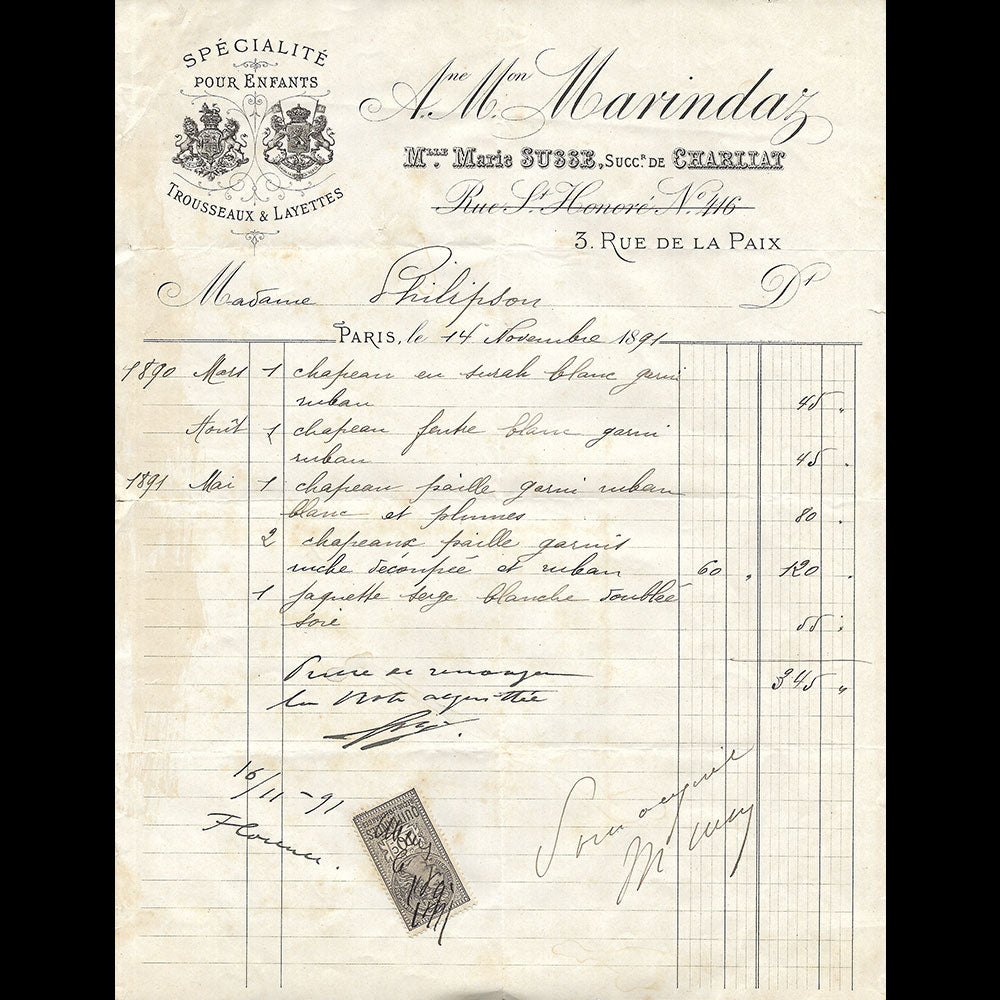 SPÉCIALITÉ
POUR ENFANTS
TROUSSEAUX & LAYETTES
Ane. Mon. Marindaz
MLLE. Marie SUSSE, Succr. DE CHARLIAT
Rue St. Honoré No. 416
3. RUE DE LA PAIX
Madame Philipson Dt
PARIS, le 14 Novembre 1891
1890 Mars 1 chapeau en surah blanc garni
ruban 45 "
Août 1 chapeau feutre blanc garni
ruban 45 "
1891 Mai 1 chapeau paille garni ruban
blanc et plumes 80 "
2 chapeaux paille garnis
ruche decoupée et ruban 60 " 120 "
1 jaquette serge blanche doublée
soie 55 "
345 "
Prière de renvoyer
la Note acquittée
16/11-91
Florence.
Pour acquit